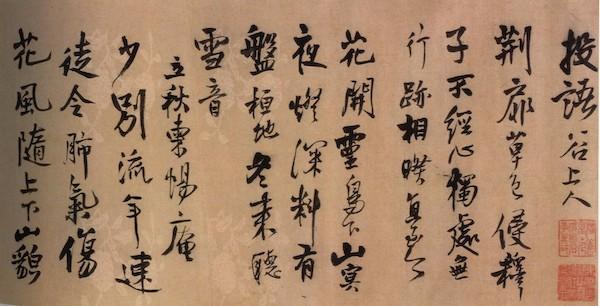 投語谷上人
荆扉草色侵釋
子不經心獨處無
行跡相暌直至今
花開靈鳥下山冥
夜燈深料有
盤桓地冬來聽
雪音
立秋柬惕庵
少別流年速
徒令肺氣傷
花風隨上下山貌